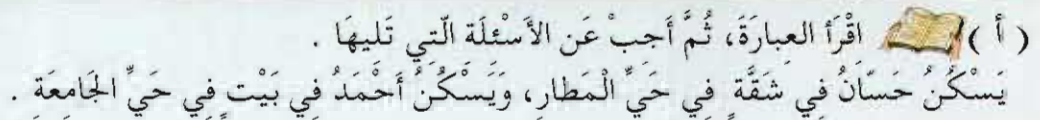 ( أ ) اقْرَأ العِبارَةَ، ثُمَّ أَجِبْ عَنِ الأَسْئِلَةِ الَّتِي تَلِيهَا .
يَسْكُنُ حَسّانُ فِي شَقَّةٍ فِي حَيِّ الْمَطارِ، وَيَسْكُنُ أَحْمَدُ فِي بَيْتٍ فِي حَيِّ الجَامِعَةِ .